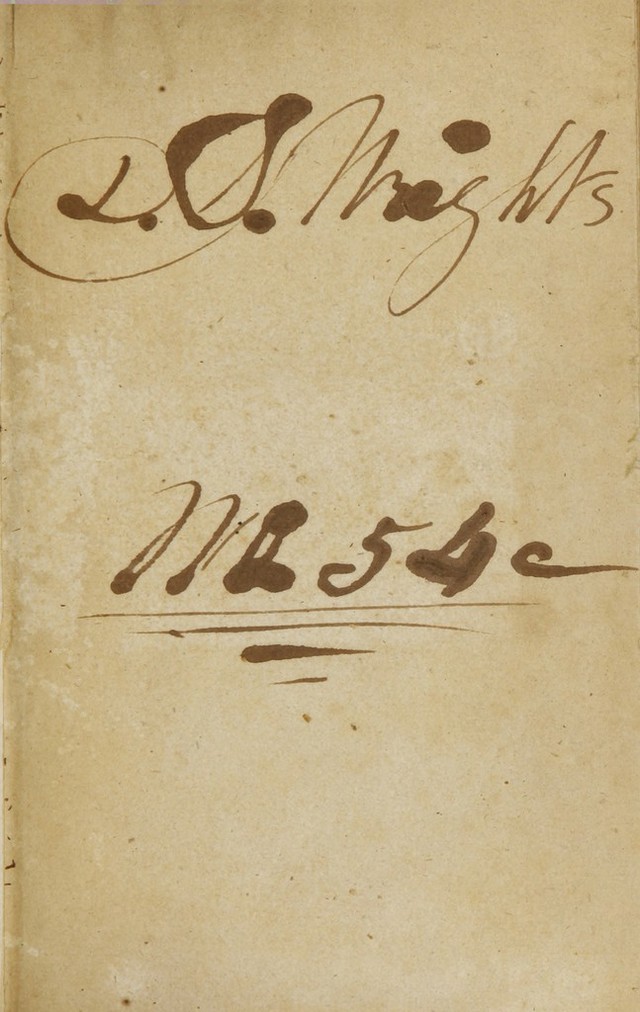 L. S. Wrights
54c